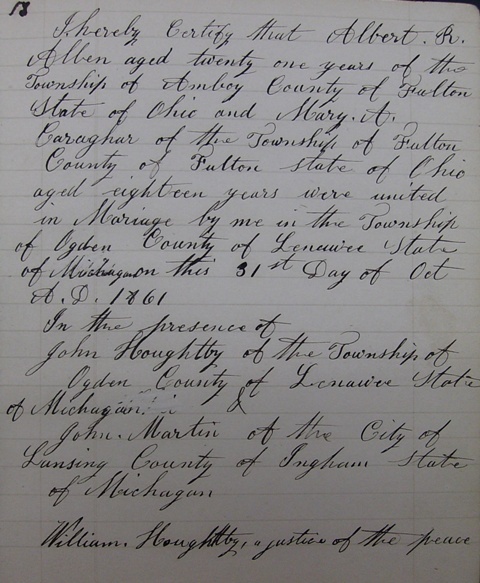 13
I hereby Certify that Albert. R.
Alben aged twenty one years of the
Township of Amboy County of Fulton
State of Ohio and Mary. A.
Caraghar of the Township of Fulton
County of Fulton state of Ohio
aged eighteen years were united
in Mariage by me in the Township
of Ogden County of Lenawee State
of Michagan on this 31st Day of Oct
A. D. 1861
In the presence of
John Houghtby of the Township of
Ogden County of Lenawee State
of Michagan &
John. Martin of the City of
Lansing County of Ingham State
of Michagan
William. Houghtby, a justice of the peace